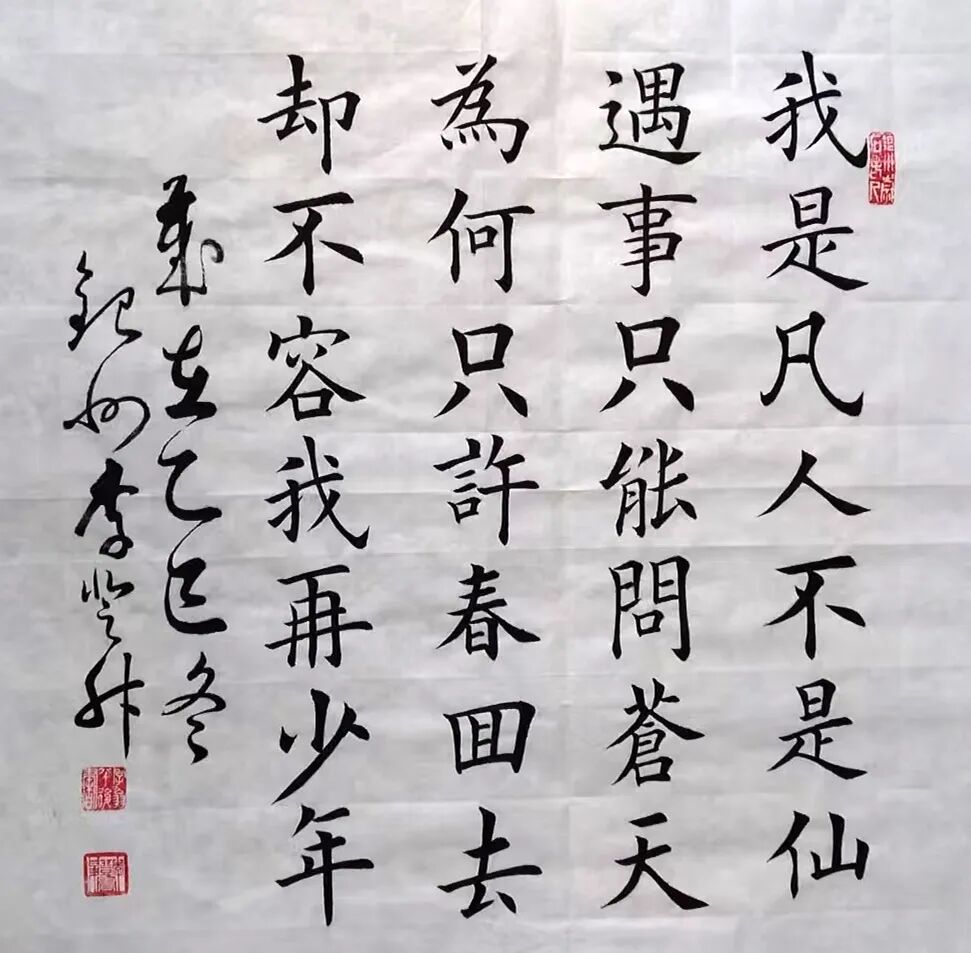 我是凡人不是仙
遇事只能問蒼天
為何只許春回去
却不容我再少年
歲在乙巳冬
銀州李登科